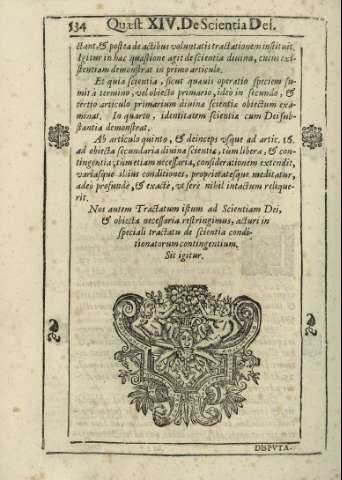 534 Quæst XIV. De Scientia Dei.
ctant, & postea de actibus voluntatis tractationem instituit.
Igitur in hac quæstione agit de scientia divina, cuius exi-
stentiam demonstrat in primo articulo.
Et quia scientia, sicut quævis operatio speciem su-
mit à termino, vel obiecto primario, ideò in secundo, &
tertio articulo primarium divinæ scientiæ obiectum exa-
minat. In quarto, identitatem scientiæ cum Dei sub-
stantia demonstrat.
Ab articulo quinto, & deinceps vsque ad artic. 16.
ad obiecta secundaria divinæ scientiæ, tùm libera, & con-
tingentia; tùm etiam necessaria, considerationem extendit,
variasque illius conditiones, proprietatesque meditatur,
adeò profundè, & exactè, vt ferè nihil intactum relique-
rit.
Nos autem Tractatum istum ad Scientiam Dei,
& obiecta necessaria restringimus, acturi in
speciali tractatu de scientia condi-
tionatorum contingentium.
Sit igitur.
DISPVTA-